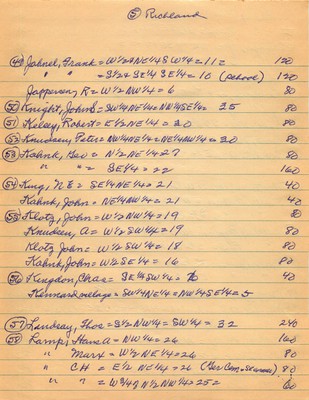 ⑤ Richland
㊾ Jahnel, Frank = W½+NE¼SW¼ = 11 = 120
" " = S½+SE¼ SE¼ = 16 (School) 120
Jappesen, R = W½NW¼ = 6 80
㊿ Knight, John S = SW¼NE¼ = NW¼SE¼ = 35 80
51 Kelsey, Robert = E½NE¼ = 30 80
52 Knudsen, Peter = NW¼NE¼ = NE¼NW¼ = 30 80
53 Kahnk, Geo = N½NE¼ = 27 80
" " = SE¼ = 22 160
54 King, N.E = SE¼NE¼ = 21 40
Kahnk, John = NE¼NW¼ = 21 40
55 Klotz, John = W½NW¼ = 19 80
Knudsen, A = W½SW¼ = 19 80
Klotz John = W½SW¼ = 18 80
Kahnk, John = W½SE¼ = 16 80
56 Kingdon, Chas = SE¼SW¼ = 40
Kennard village = SW¼NE¼ = NW¼SE¼ = 5
57 Lindsay, Thos = S½NW¼ = SW¼ = 32 240
58 Lamp, Hans A = NW¼ = 26 160
" Marx = W½NE¼ = 26 80
" CH = E½ NE¼ = 26 80
" " = N½NW¼ = 25 = 60